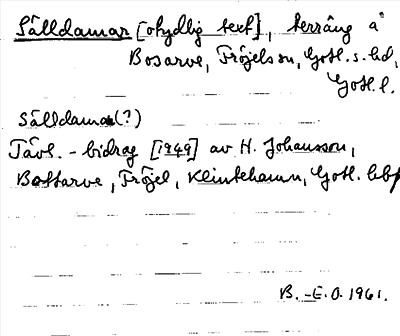 Sälldamar [otydlig text], terräng å
Bosarve, Fröjels sn, Gotl. s. hd,
Gotl. l.
Sälldama (?)
Tävl.-bidrag [1949] av H. Johansson,
Bottarve, Fröjel, Klintehamn, Gotl.
B.-E.O. 1961.